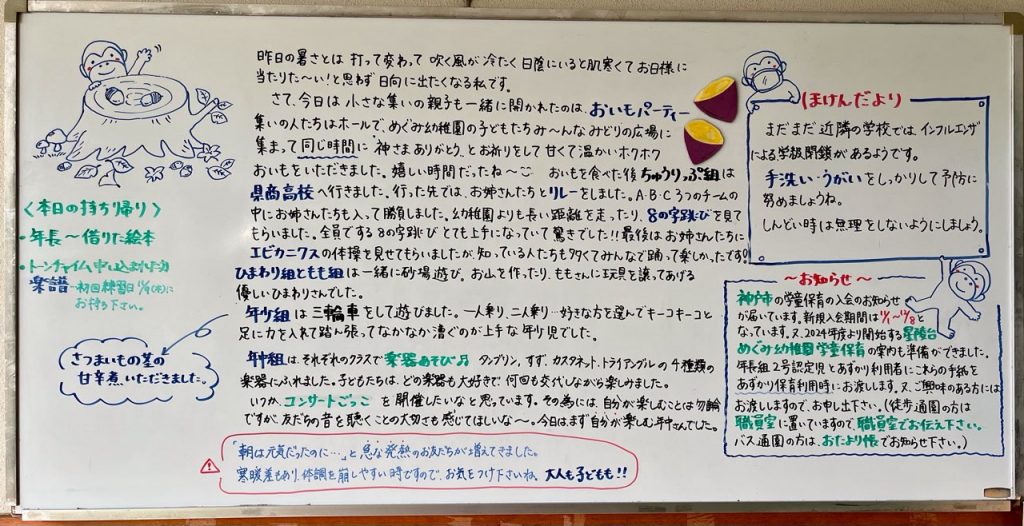 昨日の暑さとは 打って変わって 吹く風が 冷たく 日陰にいると肌寒くて お日様に
当たりた〜い!と思わず 日向に出たくなる私です。
さて、今日は 小さな集いの親子も一緒に開かれたのは、おいもパーティー
集いの人たちはホールで、めぐみ幼稚園の子どもたちみ〜んなみどりの広場に
集まって 同じ時間に 神さまありがとう、とお祈りをして 甘くて温かいホクホク
おいもをいただきました。嬉しい時間だったね〜 おいもを食べた後 ちゅうりっぷ組は
県商高校へ行きました。行った先では、お姉さんたちとリレーをしました。A・B・C 3つのチームの
中にお姉さんたちも入って勝負しました。幼稚園よりも長い距離を走ったり、8の字跳びを見て
もらいました。全員でする8の字跳びとても上手になっていて驚きでした!!最後はお姉さんたちに
エビカニクスの体操を見せてもらいましたが、知っている人たちも多くてみんなで踊って楽しかったです!
ひまわり組ともも組は一緒に砂場遊び。お山を作ったり、ももさんに玩具を譲ってあげる
優しいひまわりさんでした。
年少組は 三輪車をして遊びました。一人乗り、二人乗り…好きな方を選んでキーコキーコと
足に力を入れて踏ん張ってなかなか漕ぐのが上手な年少児でした。
年中組は、それぞれのクラスで楽器あそび♫ タンブリン、すず、カスタネット、トライアングルの4種類の
楽器にふれました。子どもたちは、どの楽器も大好きで、何回も交代しながら楽しみました。
いつか、コンサートごっこ を開催したいなと思っています。その為には、自分が楽しむことは勿論
ですが、友だちの音を聴くことの大切さも感じてほしいな〜。今日はまず自分が楽しむ年中さんでした。
「朝は元気だったのに…」と急な発熱のお友だちが増えてきました。
寒暖差もあり、体調を崩しやすい時ですので、お気をつけ下さいね。大人も子どもも!!
〈本日の持ち帰り〉
・年長〜借りた絵本
・トーンチャイム申し込まれた方
楽譜…初回練習日
お待ち下さい。
さつまいもの茎の
甘辛煮いただきました。
ほけんだより
まだまだ 近隣の学校では、インフルエンザ
による学級閉鎖があるようです。
手洗い・うがいをしっかりして予防に
努めましょうね。
しんどい時は無理をしないようにしましょう。
〜お知らせ〜
神戸市の学童保育の入会のお知らせ
が届いています。新規入会期間は11/1〜12/8と
なっています。又、2024年度より開始する星陵台
めぐみ幼稚園学童保育の案内も準備ができました。
年長組2号認定児とあずかり利用者にこれらの手紙を
あずかり保育利用時にお渡しします。又、ご興味のある方には
お渡ししますので、お申し出下さい。(徒歩通園の方は
職員室に置いていますので、職員室でお伝え下さい。
バス通園の方は、おたより帳でお知らせ下さい。)